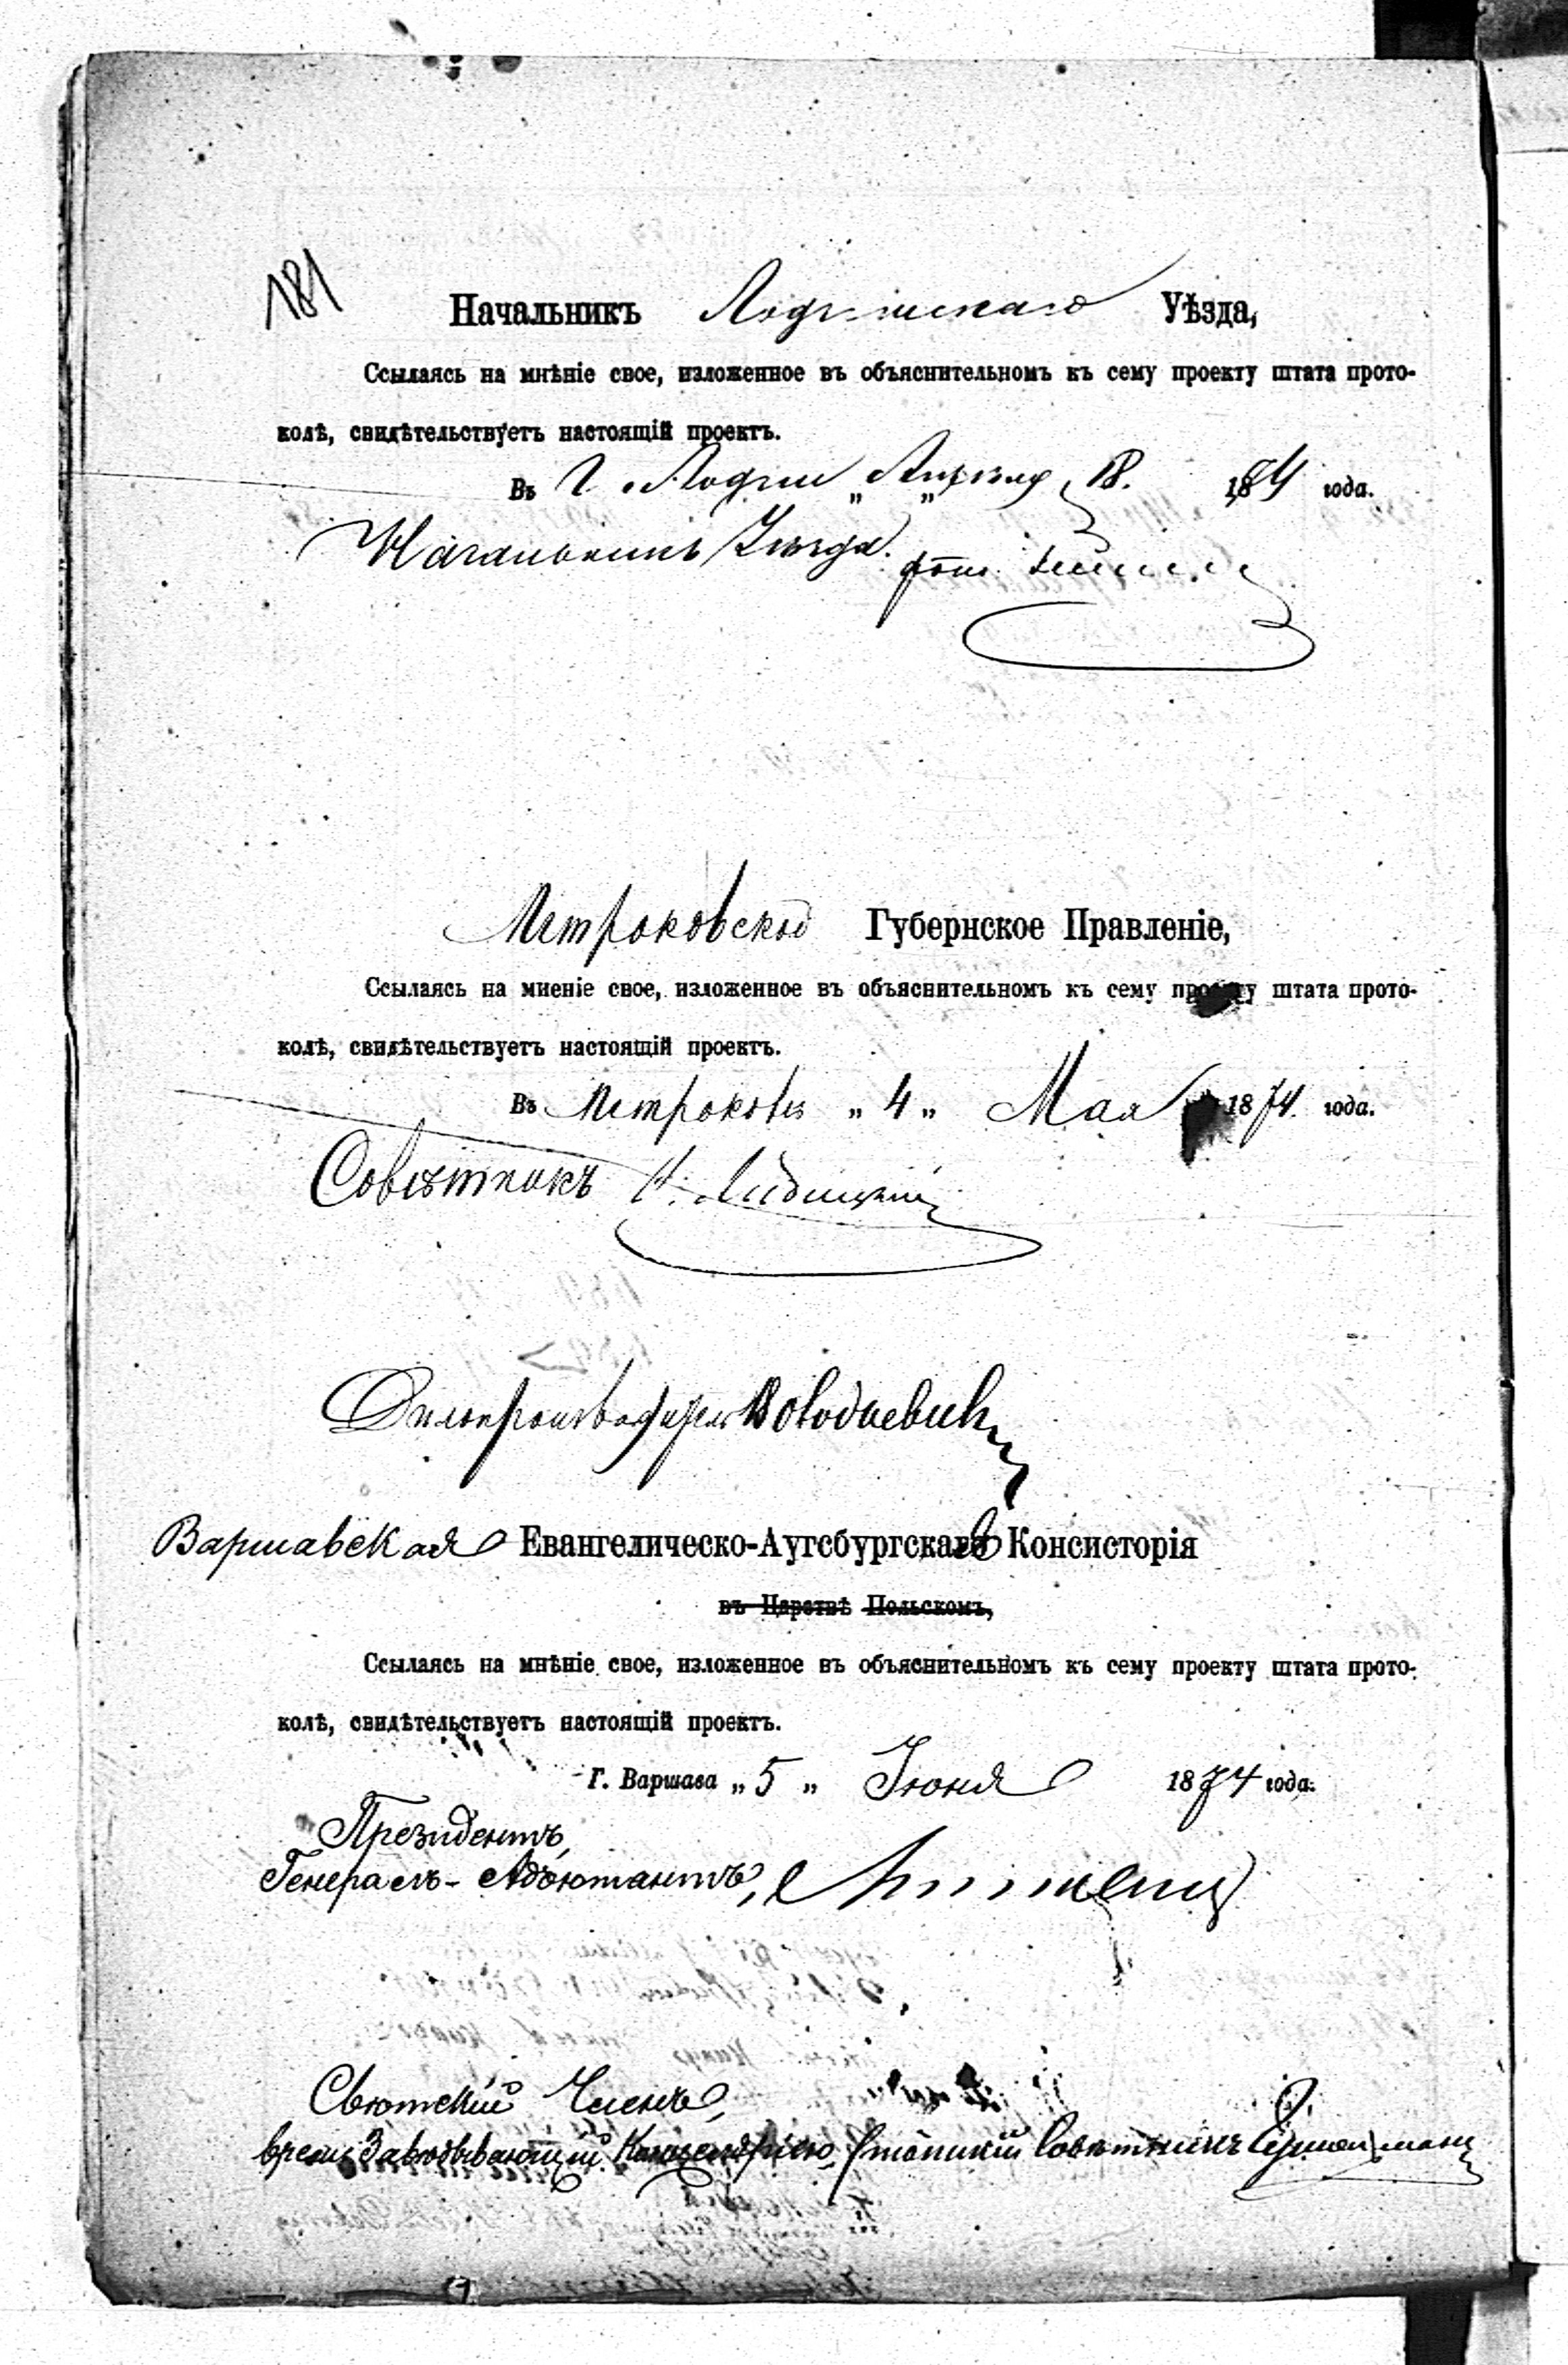 181
Начальникъ Лодзинскаго Уѣзда,
Ссылаясь на мнѣніе свое, изложенное въ объяснительномъ къ сему проекту штата прото-
колѣ, свидѣтельствуетъ настоящій проектъ.
Въ г. Лодзи „ Апрѣля „ 18. 1874 года.
Начальникъ Уѣзда
Петроковское Губернское Правленіе,
Ссылаясь на мненіе свое, изложенное въ объяснительномъ къ сему проекту штата прото-
колѣ, свидѣтельствуетъ настоящій проектъ.
Въ Петроковѣ „ 4 „ Мая 1874 года.
Совѣтникъ
Дѣлопроизводитель
Варшавская Евангелическо-Аугсбургская Консисторія
въ Царствѣ Польскомъ,
Ссылаясь на мнѣніе свое, изложенное въ объяснительномъ къ сему проекту штата прото-
колѣ, свидѣтельствуетъ настоящій проектъ.
Г. Варшава „ 5 „ Іюня 1874 года.
Президентъ,
Генералъ-Адъютантъ,
Свѣтскій Членъ,
Завѣдывающій Канцеляріею, Статскій Совѣтникъ